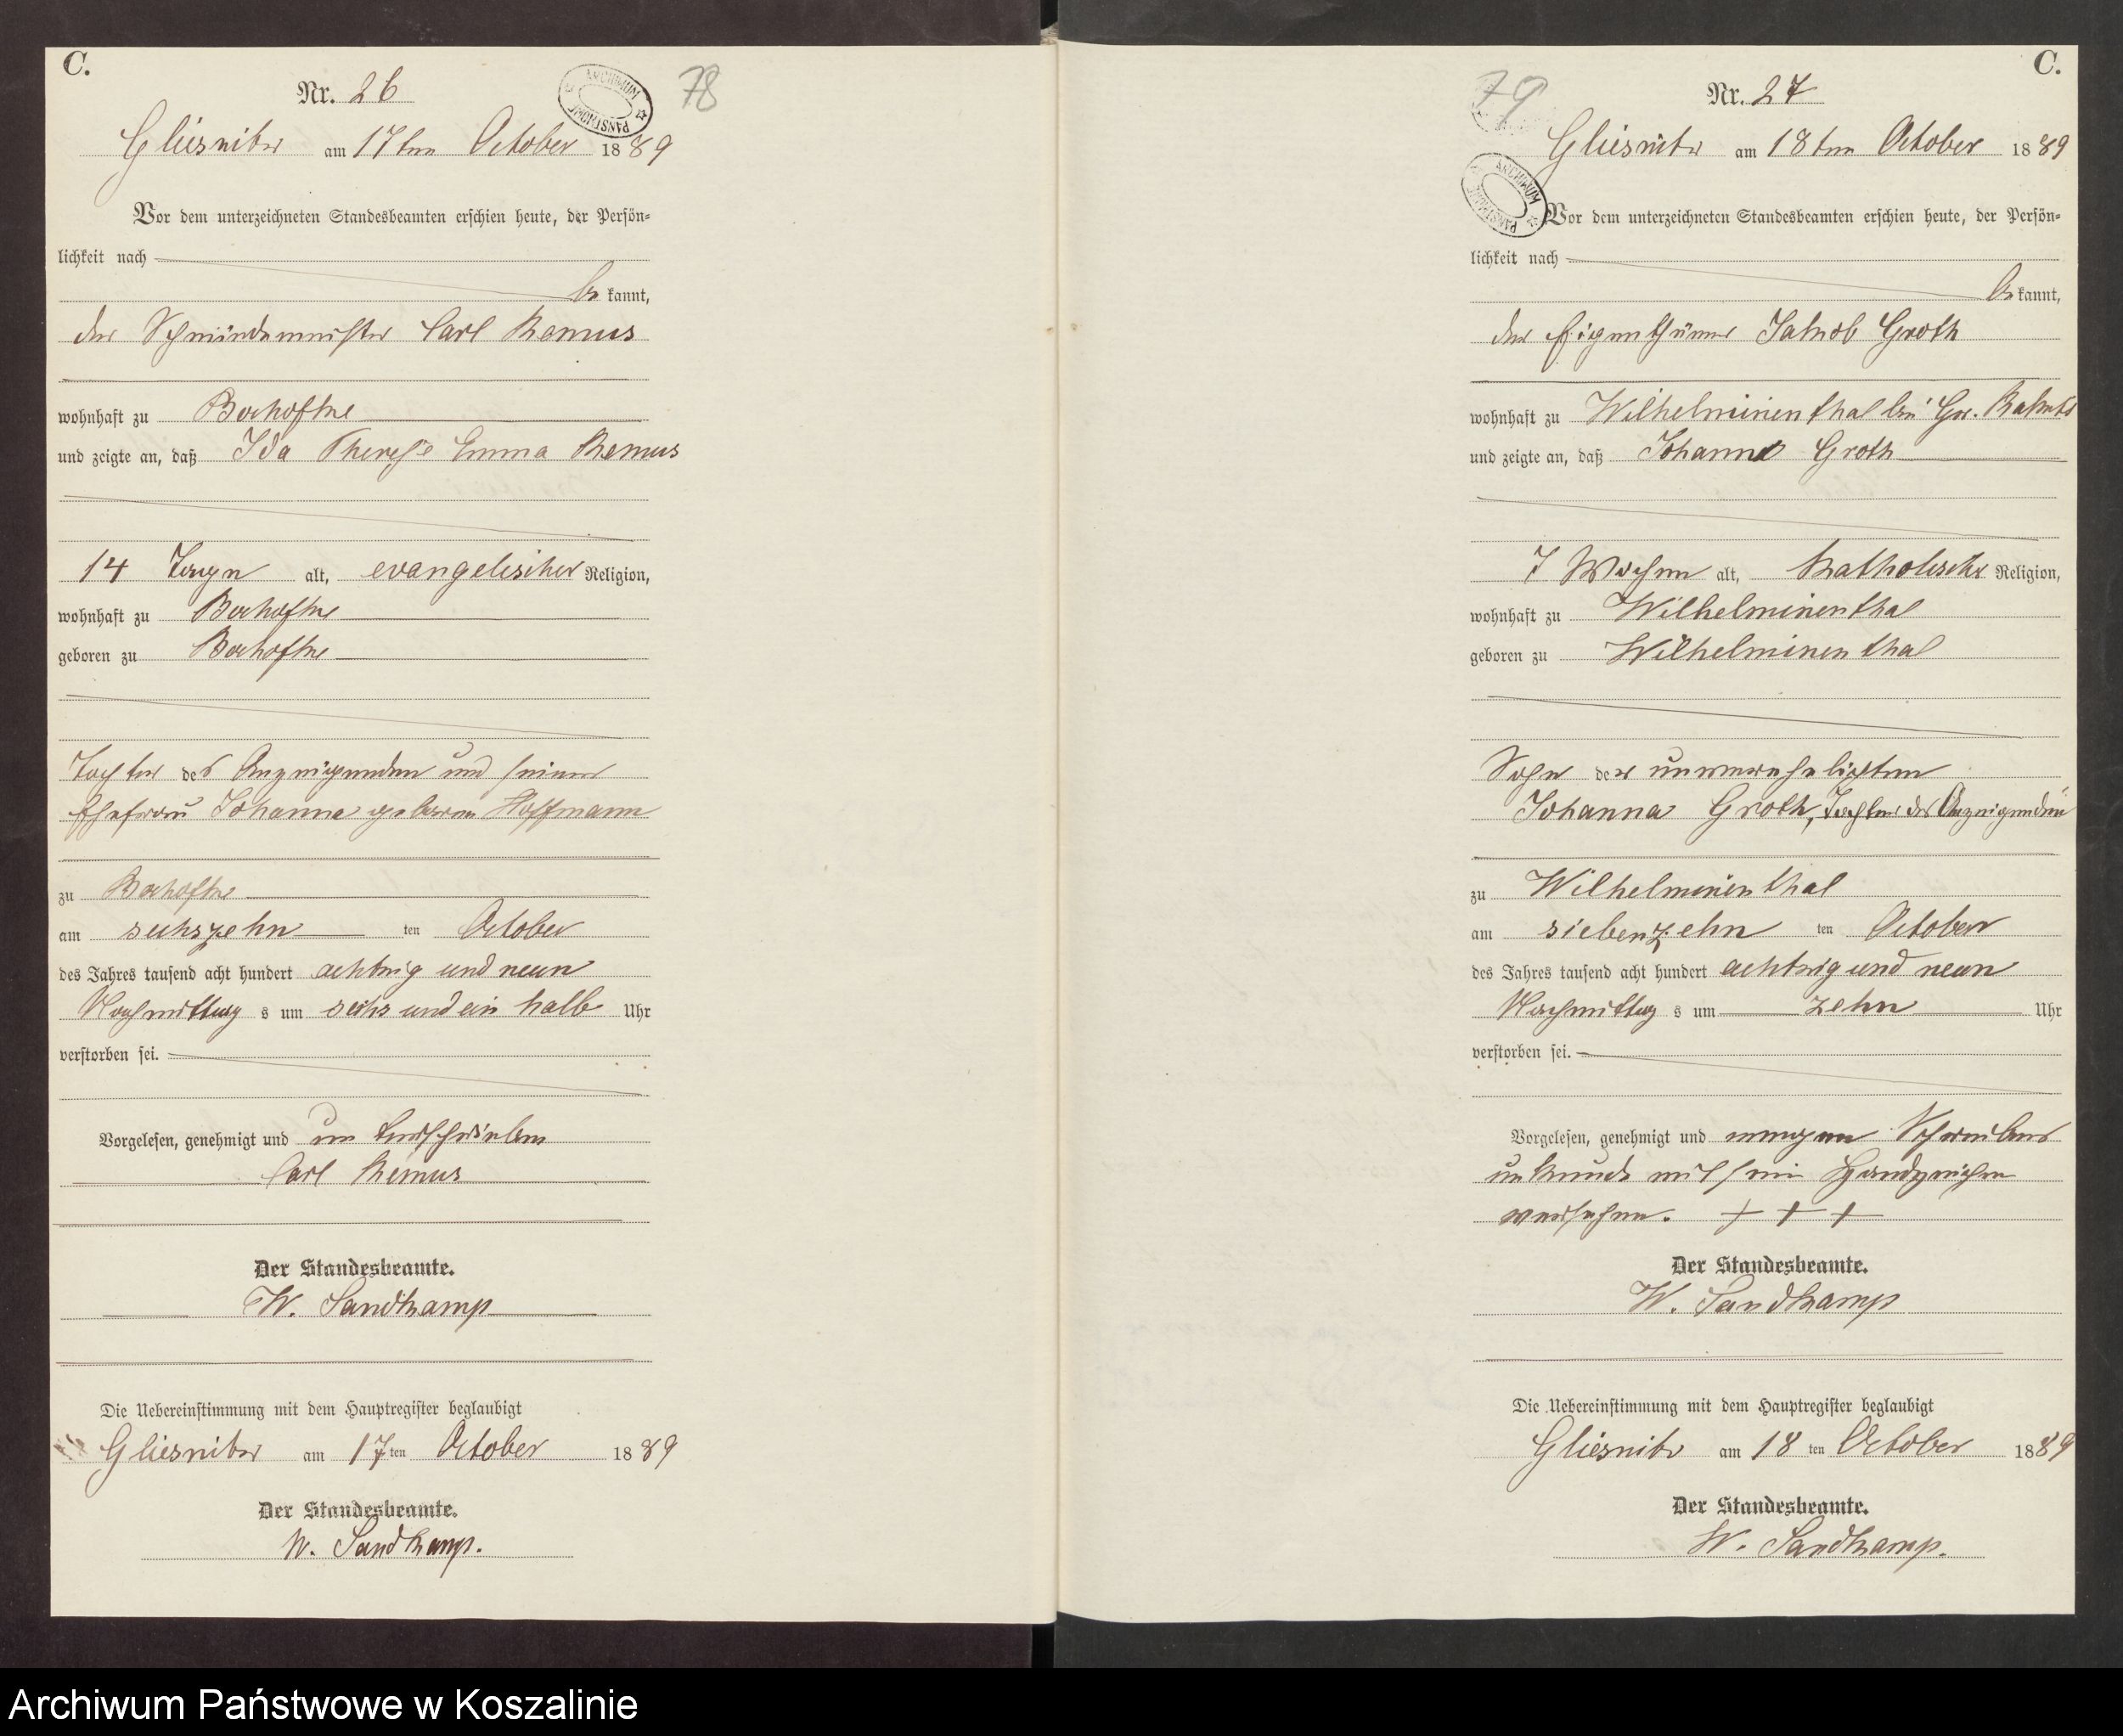 C.
Nr. 26
ARCHIWUM PAŃSTWOWE
78
Gliesnitz am 17ten October 1889
Vor dem unterzeichneten Standesbeamten erschien heute, der Persön-
lichkeit nach
be kannt,
der Schmiedemeister Carl Remus
wohnhaft zu Bochofke
und zeigte an, daß Ida Therese Emma Remus
14 Tage alt, evangelischer Religion,
wohnhaft zu Bochofke
geboren zu Bochofke
Tochter des Anzeigenden und seiner
Ehefrau Johanna geborene Hoffmann
zu Bochofke
am sechszehn ten October
des Jahres tausend acht hundert achtzig und neun
Nachmittag s um sechs und ein halb Uhr
verstorben sei.
Vorgelesen, genehmigt und unterschrieben
Carl Remus
Der Standesbeamte.
W. Sandkamp
Die Uebereinstimmung mit dem Hauptregister beglaubigt
Gliesnitz am 17ten October 1889
Der Standesbeamte.
W. Sandkamp.
C.
Nr. 27
79
Gliesnitz am 18ten October 1889
ARCHIWUM PAŃSTWOWE
Vor dem unterzeichneten Standesbeamten erschien heute, der Persön-
lichkeit nach
be kannt,
der Eigenthümer Jakob Groth
wohnhaft zu Wilhelminenthal bei Gr.
und zeigte an, daß Johann Groth
7 Wochen alt, katholischer Religion,
wohnhaft zu Wilhelminenthal
geboren zu Wilhelminenthal
Sohn der unverehelichten
Johanna Groth, Tochter des Anzeigenden
zu Wilhelminenthal
am siebenzehn ten October
des Jahres tausend acht hundert achtzig und neun
Nachmittag s um zehn Uhr
verstorben sei.
Vorgelesen, genehmigt und wegen Schreibens
unkunde mit sein Handzeichen
versehen. + + +
Der Standesbeamte.
W. Sandkamp
Die Uebereinstimmung mit dem Hauptregister beglaubigt
Gliesnitz am 18 ten October 1889
Der Standesbeamte.
W. Sandkamp.
Archiwum Państwowe w Koszalinie